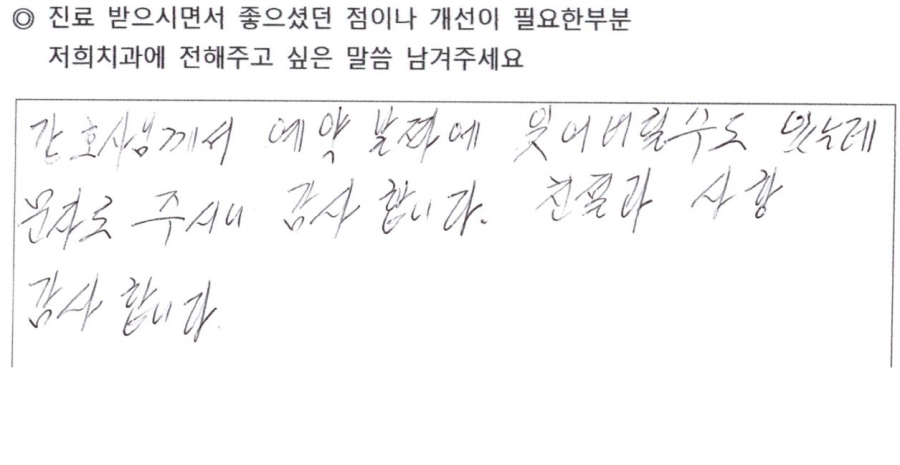 ◎ 진료 받으시면서 좋으셨던 점이나 개선이 필요한부분
저희치과에 전해주고 싶은 말씀 남겨주세요
간호사님께서 예약 날짜에 잊어버릴수도 있는데
문자로 주시니 감사 합니다. 친절과 사항
감사 합니다.